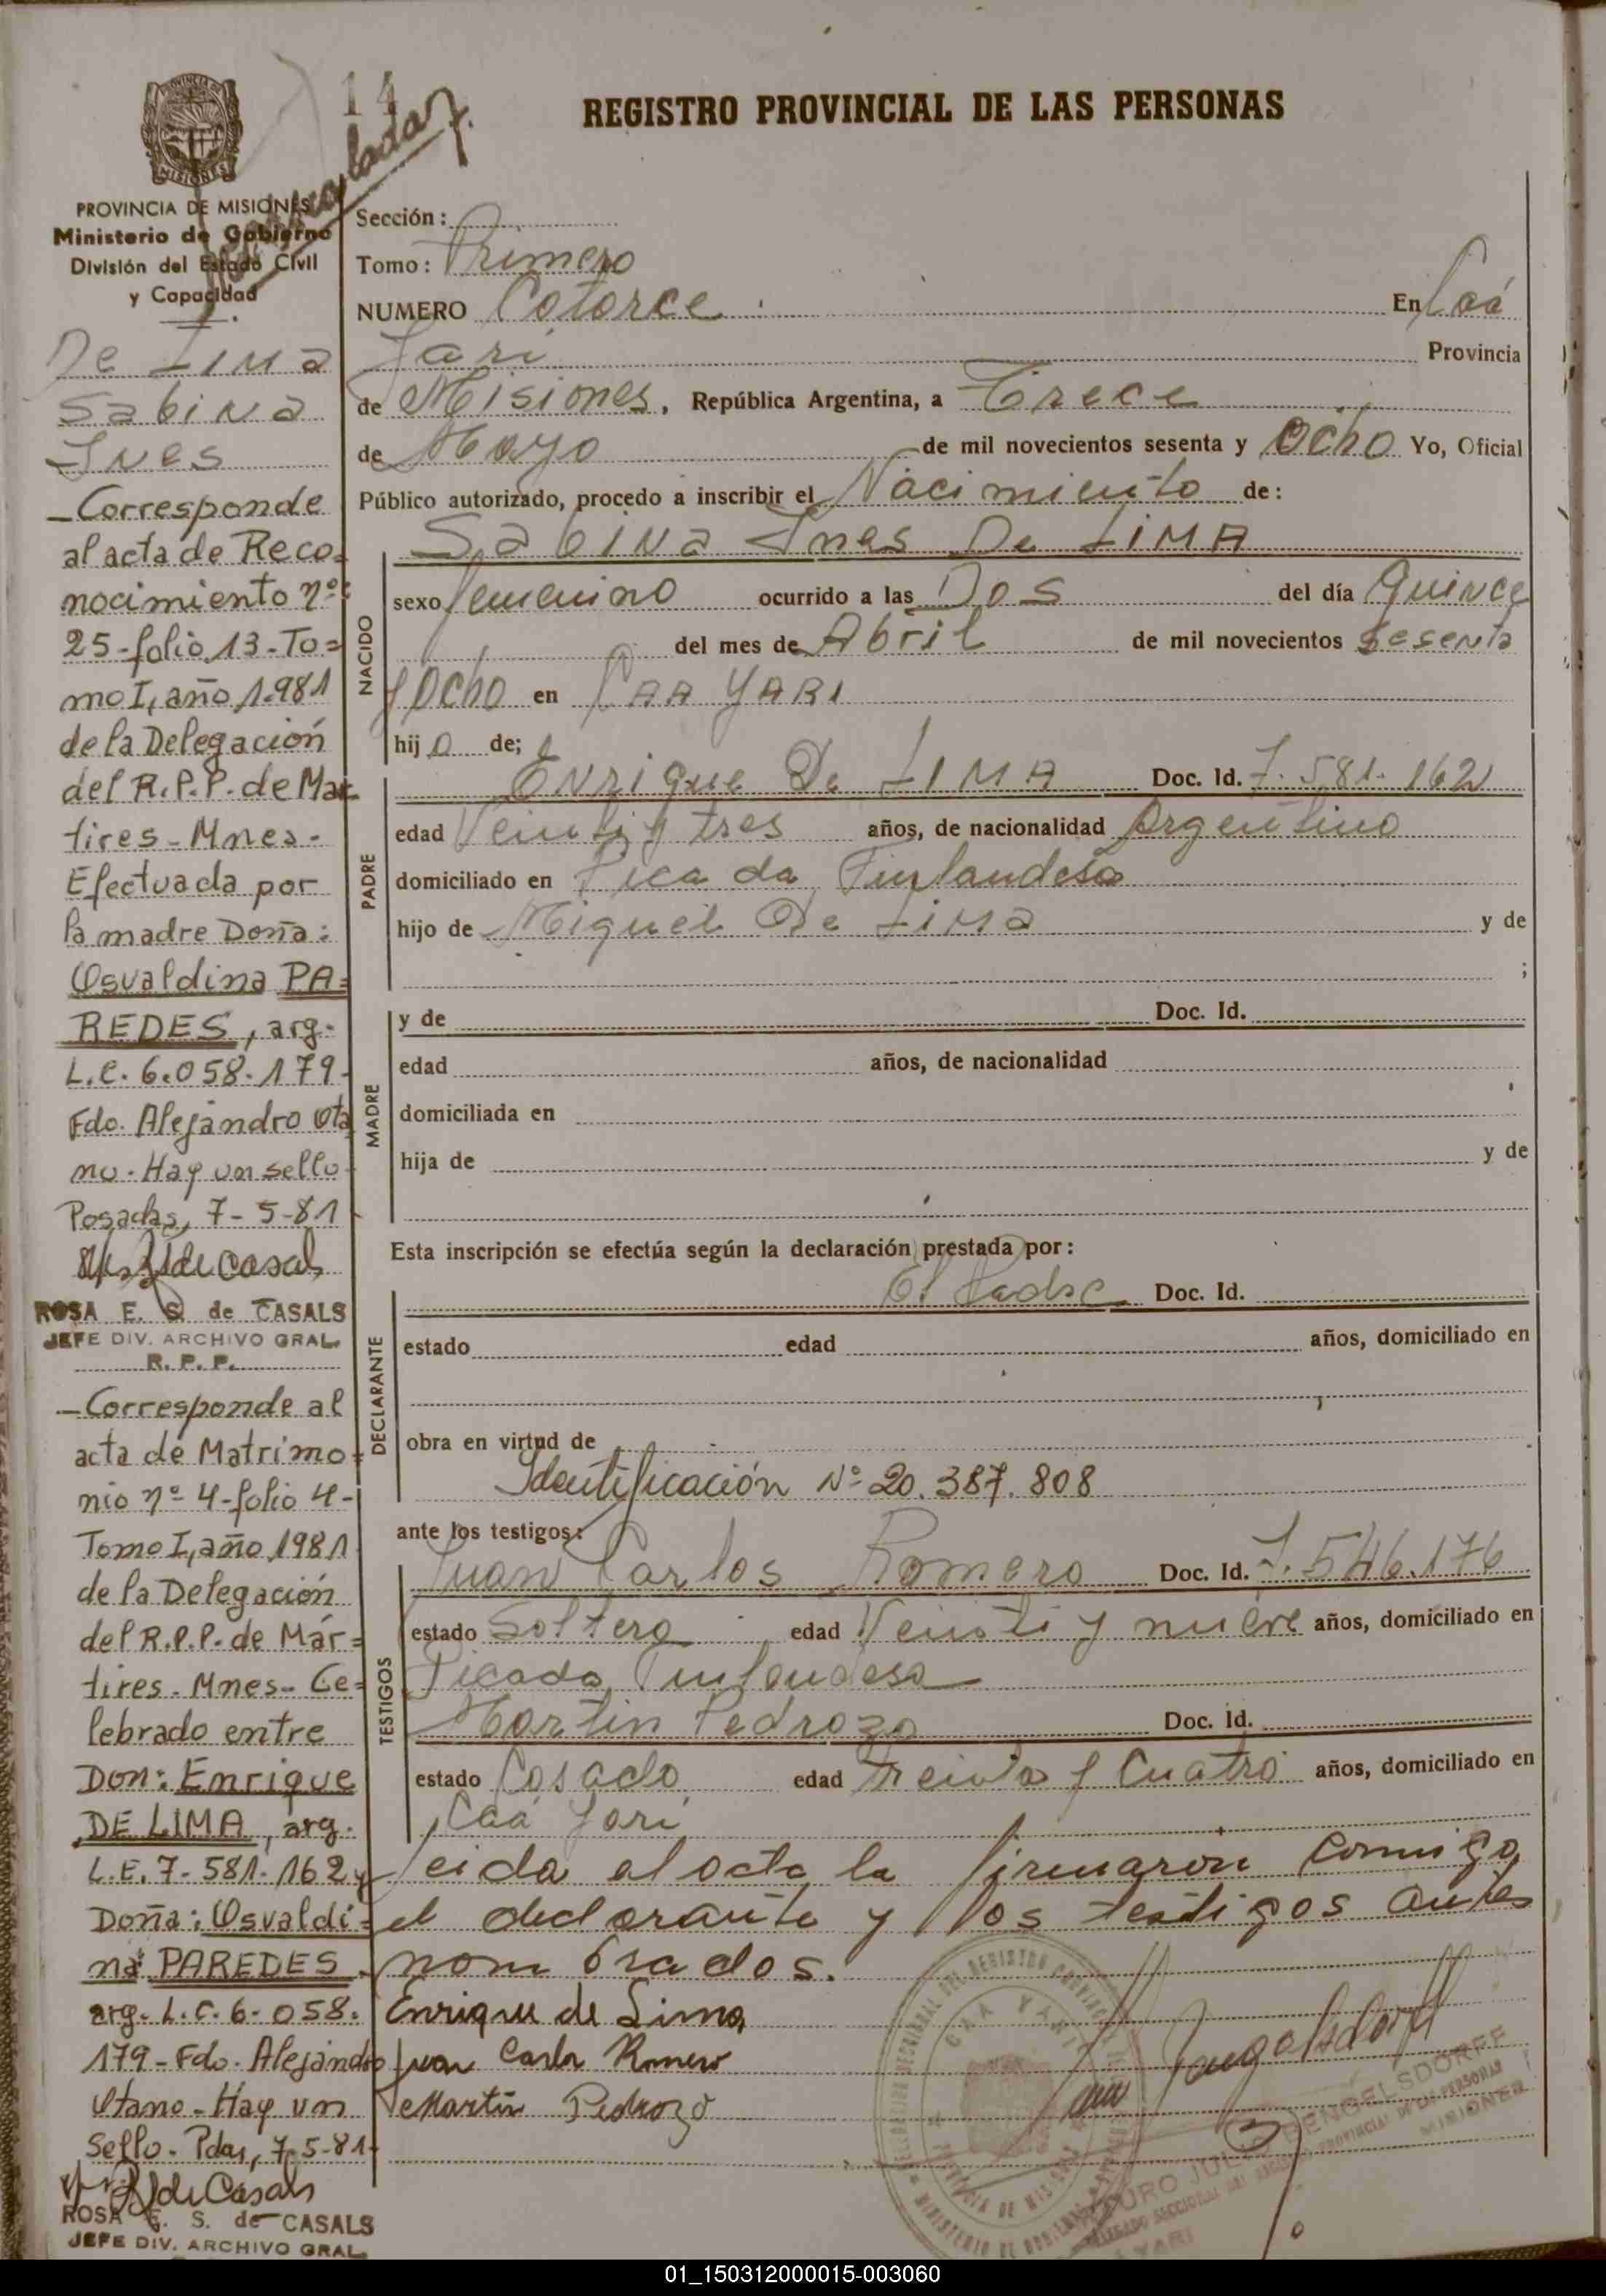 14
REGISTRO PROVINCIAL DE LAS PERSONAS
PROVINCIA DE MISIONES
Ministerio de Gobierno
División del Estado Civil
y Capacidad
De Lima
Sabina
Ines
-Corresponde
al acta de Reco=
nocimiento nº:
25-folio 13-To=
mo I, año 1.981
de la Delegación
del R.P.P. de Mar-
tires-Mnes-
Efectuada por
la madre Doña:
Osvaldina PA=
REDES, arg.
L.C. 6.058.179-
Fdo. Alejandro Ota
no-Hay un sello-
Posadas, 7-5-81
ROSA E. S. de CASALS
JEFE DIV. ARCHIVO GRAL.
R. P. P.
-Corresponde al
acta de Matrimo=
nio nº 4-folio 4-
Tomo I, año 1981
de la Delegación
del R.P.P. de Már=
tires-Mnes-Ce=
lebrado entre
Don: Enrique
DE LIMA, arg.
L.E. 7-581-162 y
Doña: Osvaldi=
na PAREDES-
arg. L.C. 6-058.
179-Fdo. Alejandro
Otano-Hay un
Sello-Pdas, 7-5-81-
ROSA E. S. de CASALS
JEFE DIV. ARCHIVO GRAL
Sección:
Tomo: Primero
NUMERO Catorce En Caá
Yari Provincia
de Misiones, República Argentina, a Trece
de Mayo de mil novecientos sesenta y Ocho Yo, Oficial
Público autorizado, procedo a inscribir el Nacimiento de:
NACIDO
Sabina Ines De LIMA
sexo femenino ocurrido a las Dos del día Quince
del mes de Abril de mil novecientos Sesenta
y Ocho en CAA YARI
hija de;
PADRE
Enrique De LIMA Doc. Id. 7.581.162
edad Veinti y tres años, de nacionalidad Argentino
domiciliado en Picada Finlandesa
hijo de Miguel De Lima y de
;
MADRE
y de Doc. Id.
edad años, de nacionalidad
domiciliada en
hija de y de
Esta inscripción se efectúa según la declaración prestada por:
DECLARANTE
El Padre Doc. Id.
estado edad años, domiciliado en
,
obra en virtud de
Identificación Nº 20.387.808
ante los testigos:
TESTIGOS
Juan Carlos Romero Doc. Id. 7.546.176
estado Soltero edad Veinti y nueve años, domiciliado en
Picada Finlandesa
Martin Pedrozo Doc. Id.
estado Casado edad Treinta y Cuatro años, domiciliado en
Caá Yari
Leida el acta la firmaron Comigo,
el declarante y los testigos antes
nombrados.
Enrique de Lima
Juan Carlos Romero
Martin Pedrozo
CAA YARI
01_150312000015-003060